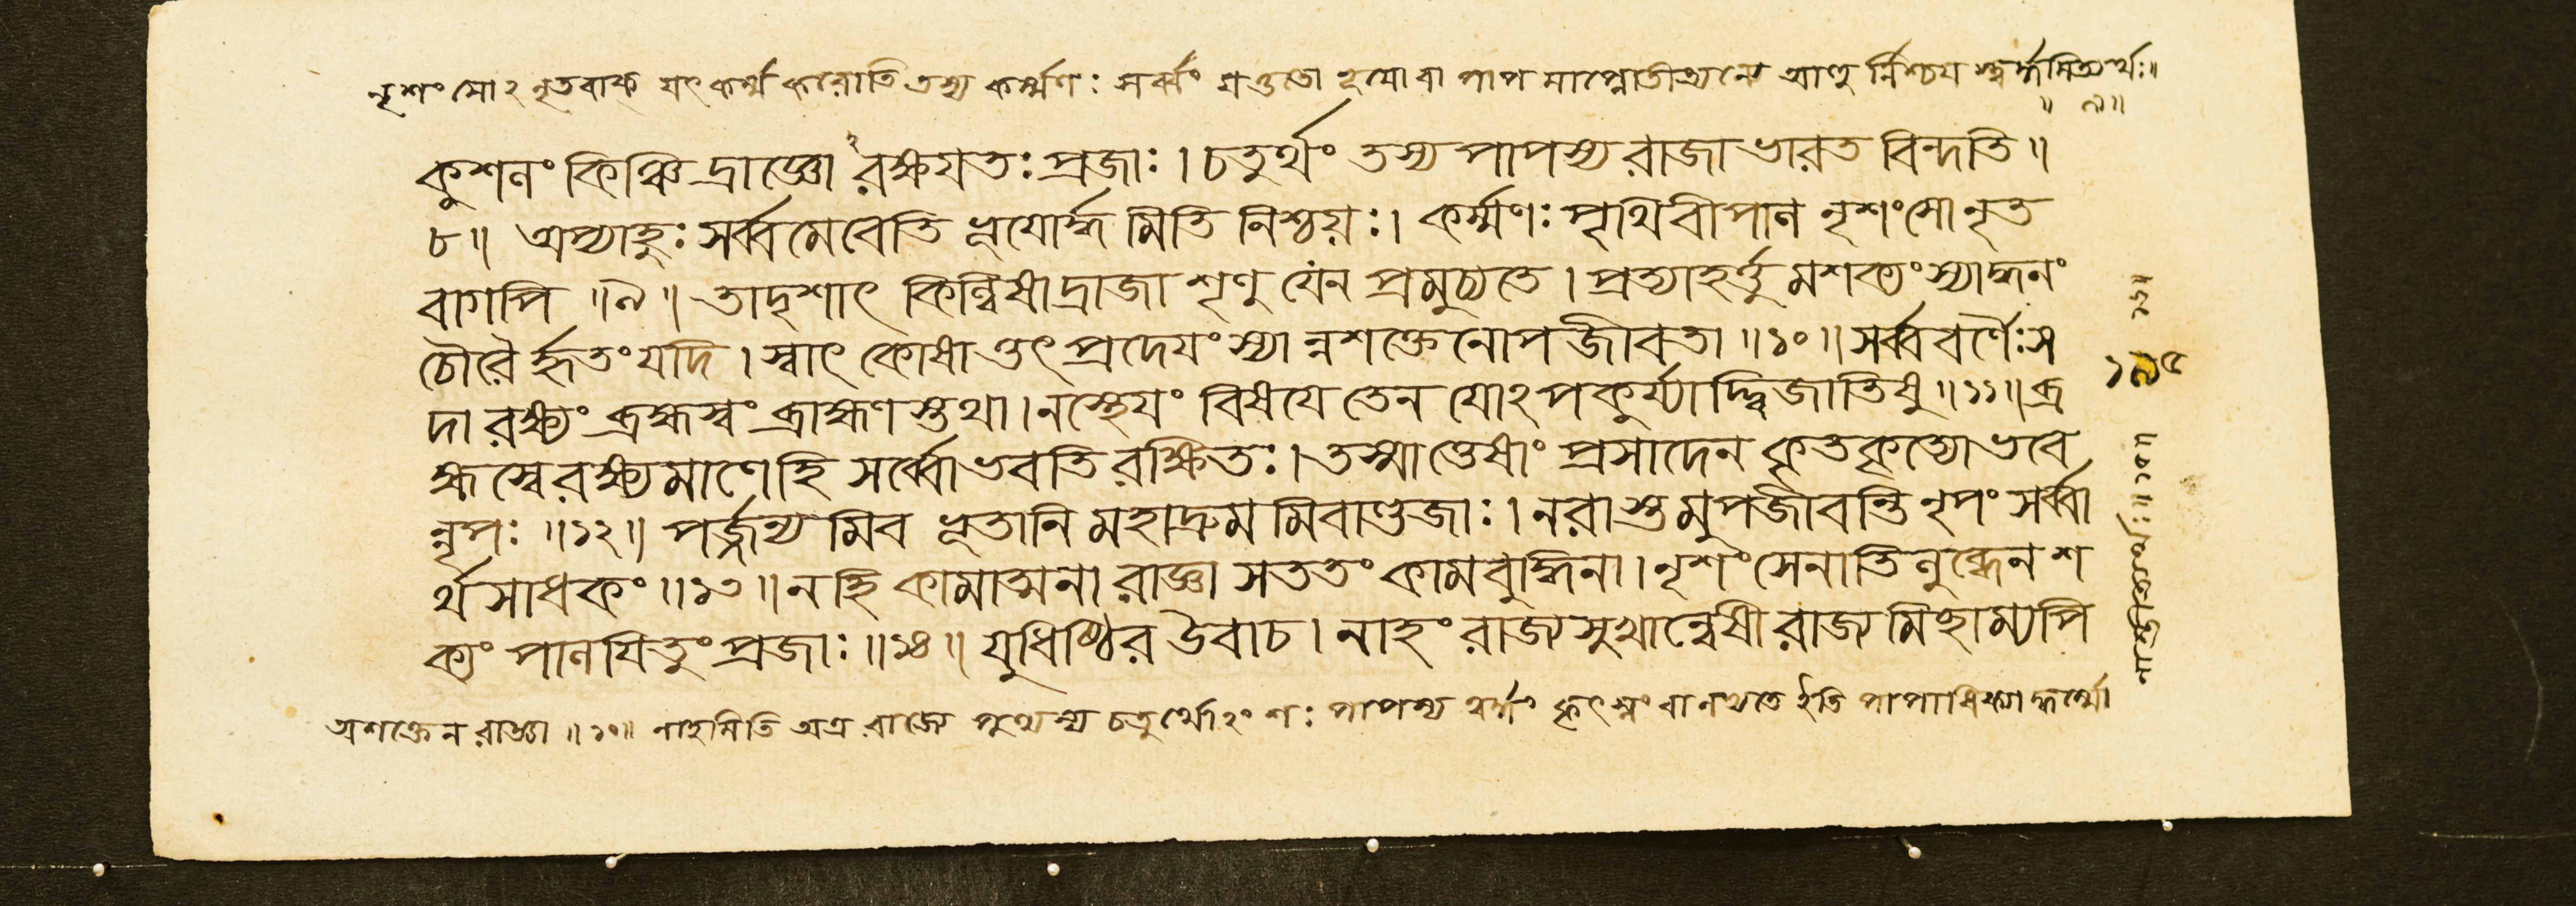 নৃশংসোঽনৃতবাক্ যৎ কর্ম্ম করোতি তস্য কর্ম্মণঃ সর্ব্বং
॥ ৯॥
কুশলং কিঞ্চিদ্রাজ্ঞো ঽরক্ষযতঃ প্রজাঃ । চতুর্থং তস্য পাপস্য রাজা ভারত বিন্দতি ॥
৮॥ অপ্যাহুঃ সর্ব্বমেবেতি ভূযোর্দ্ধমিতি নিশ্চয়ঃ । কর্ম্মণঃ পৃথিবীপাল নৃশংসোনৃত
বাগপি ॥৯॥ তাদৃশাৎ কিল্বিষাদ্রাজা শৃণু যেন প্রমুচ্যতে । প্রত্যাহর্ত্তুমশক্যং স্যাদ্ধনং
চৌরৈর্হৃতং যদি । স্বাৎ কোষাত্তৎ প্রদেযং স্যান্নশক্তেনোপজীবতা ॥১০॥ সর্ব্ববর্ণৈঃ স
১৯৫
দা রক্ষ্যং ব্রহ্মস্বং ব্রাহ্মণস্তথা । নস্থেযং বিষযে তেন যোঽপকুর্য্যাদ্দ্বিজাতিষু ॥১১॥ ব্র
হ্মস্বে রক্ষ্যমাণে হি সর্ব্বো ভবতি রক্ষিতঃ । তস্মাত্তেষাং প্রসাদেন কৃতকৃত্যো ভবে
ন্নৃপঃ ॥১২॥ পর্জ্জন্যমিব ভূতানি মহাদ্রুমমিবাণ্ডজাঃ । নরাস্তমুপজীবন্তি নৃপং সর্ব্বা
র্থসাধকং ॥১৩॥ নহি কামাত্মনা রাজ্ঞা সততং কামবুদ্ধিনা । নৃশংসেনাতিলুব্ধেন শ
ক্যং পালযিতুং প্রজাঃ ॥১৪॥ যুধিষ্ঠির উবাচ । নাহং রাজ্যসুখান্বেষী রাজ্যমিচ্ছাম্যপি
অশক্তেন রাজ্ঞা ॥১০॥ নাহমিতি অত্র রাজ্যে চতুর্থোঽংশঃ পাপস্য ইতি